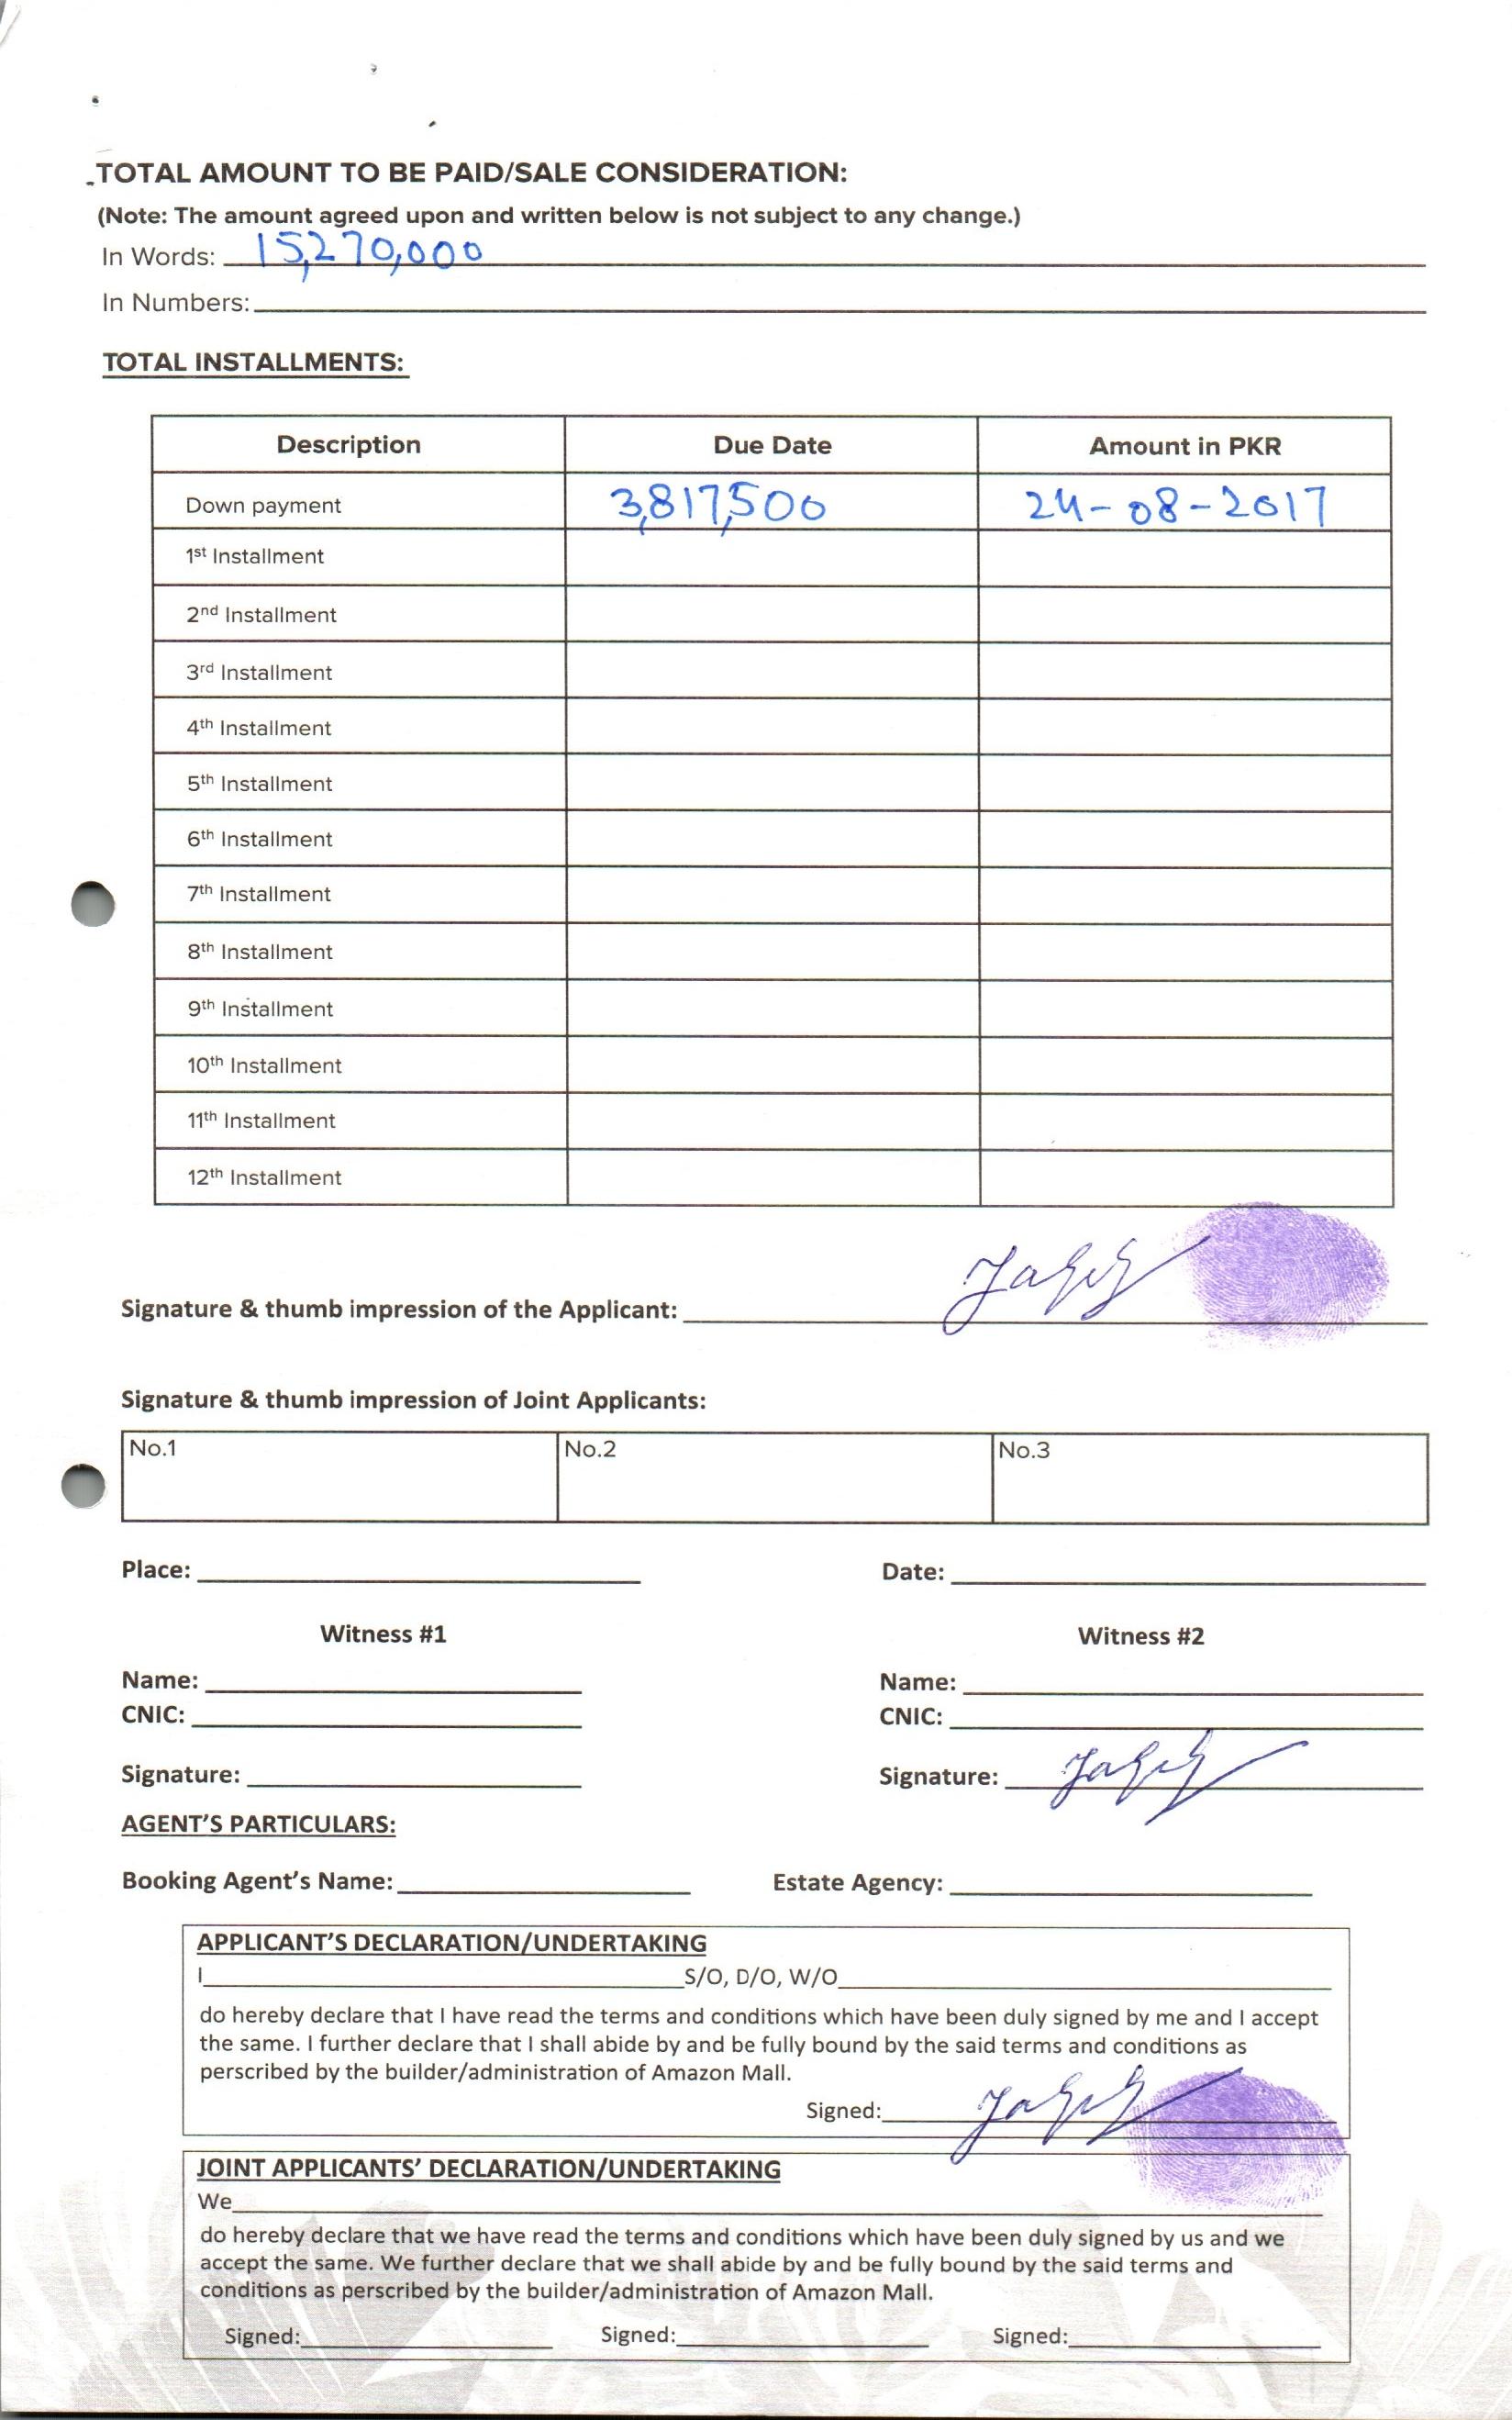 TOTAL AMOUNT TO BE PAID/SALE CONSIDERATION:
(Note: The amount agreed upon and written below is not subject to any change.)
In Words: 15,270,000
In Numbers:
TOTAL INSTALLMENTS:
Description Due Date Amount in PKR
Down payment 3,817,500 24-08-2017
1st Installment
2nd Installment
3rd Installment
4th Installment
5th Installment
6th Installment
7th Installment
8th Installment
9th Installment
10th Installment
11th Installment
12th Installment
Signature & thumb impression of the Applicant:
Signature & thumb impression of Joint Applicants:
No.1 No.2 No.3
Place: Date:
Witness #1 Witness #2
Name: Name:
CNIC: CNIC:
Signature: Signature:
AGENT'S PARTICULARS:
Booking Agent's Name: Estate Agency:
APPLICANT'S DECLARATION/UNDERTAKING
I S/O, D/O, W/O
do hereby declare that I have read the terms and conditions which have been duly signed by me and I accept
the same. I further declare that I shall abide by and be fully bound by the said terms and conditions as
perscribed by the builder/administration of Amazon Mall.
Signed:
JOINT APPLICANTS' DECLARATION/UNDERTAKING
We
do hereby declare that we have read the terms and conditions which have been duly signed by us and we
accept the same. We further declare that we shall abide by and be fully bound by the said terms and
conditions as perscribed by the builder/administration of Amazon Mall.
Signed: Signed: Signed: